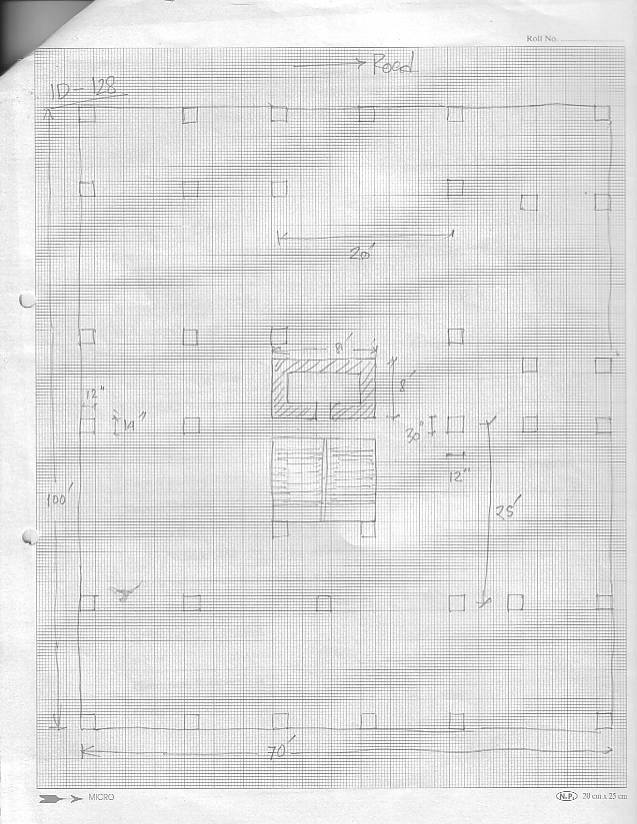 Roll No.
Road
ID-128
20'
8'
8'
12"
14"
30"
12"
100'
25'
70'
MICRO
N.P. 20 cm x 25 cm